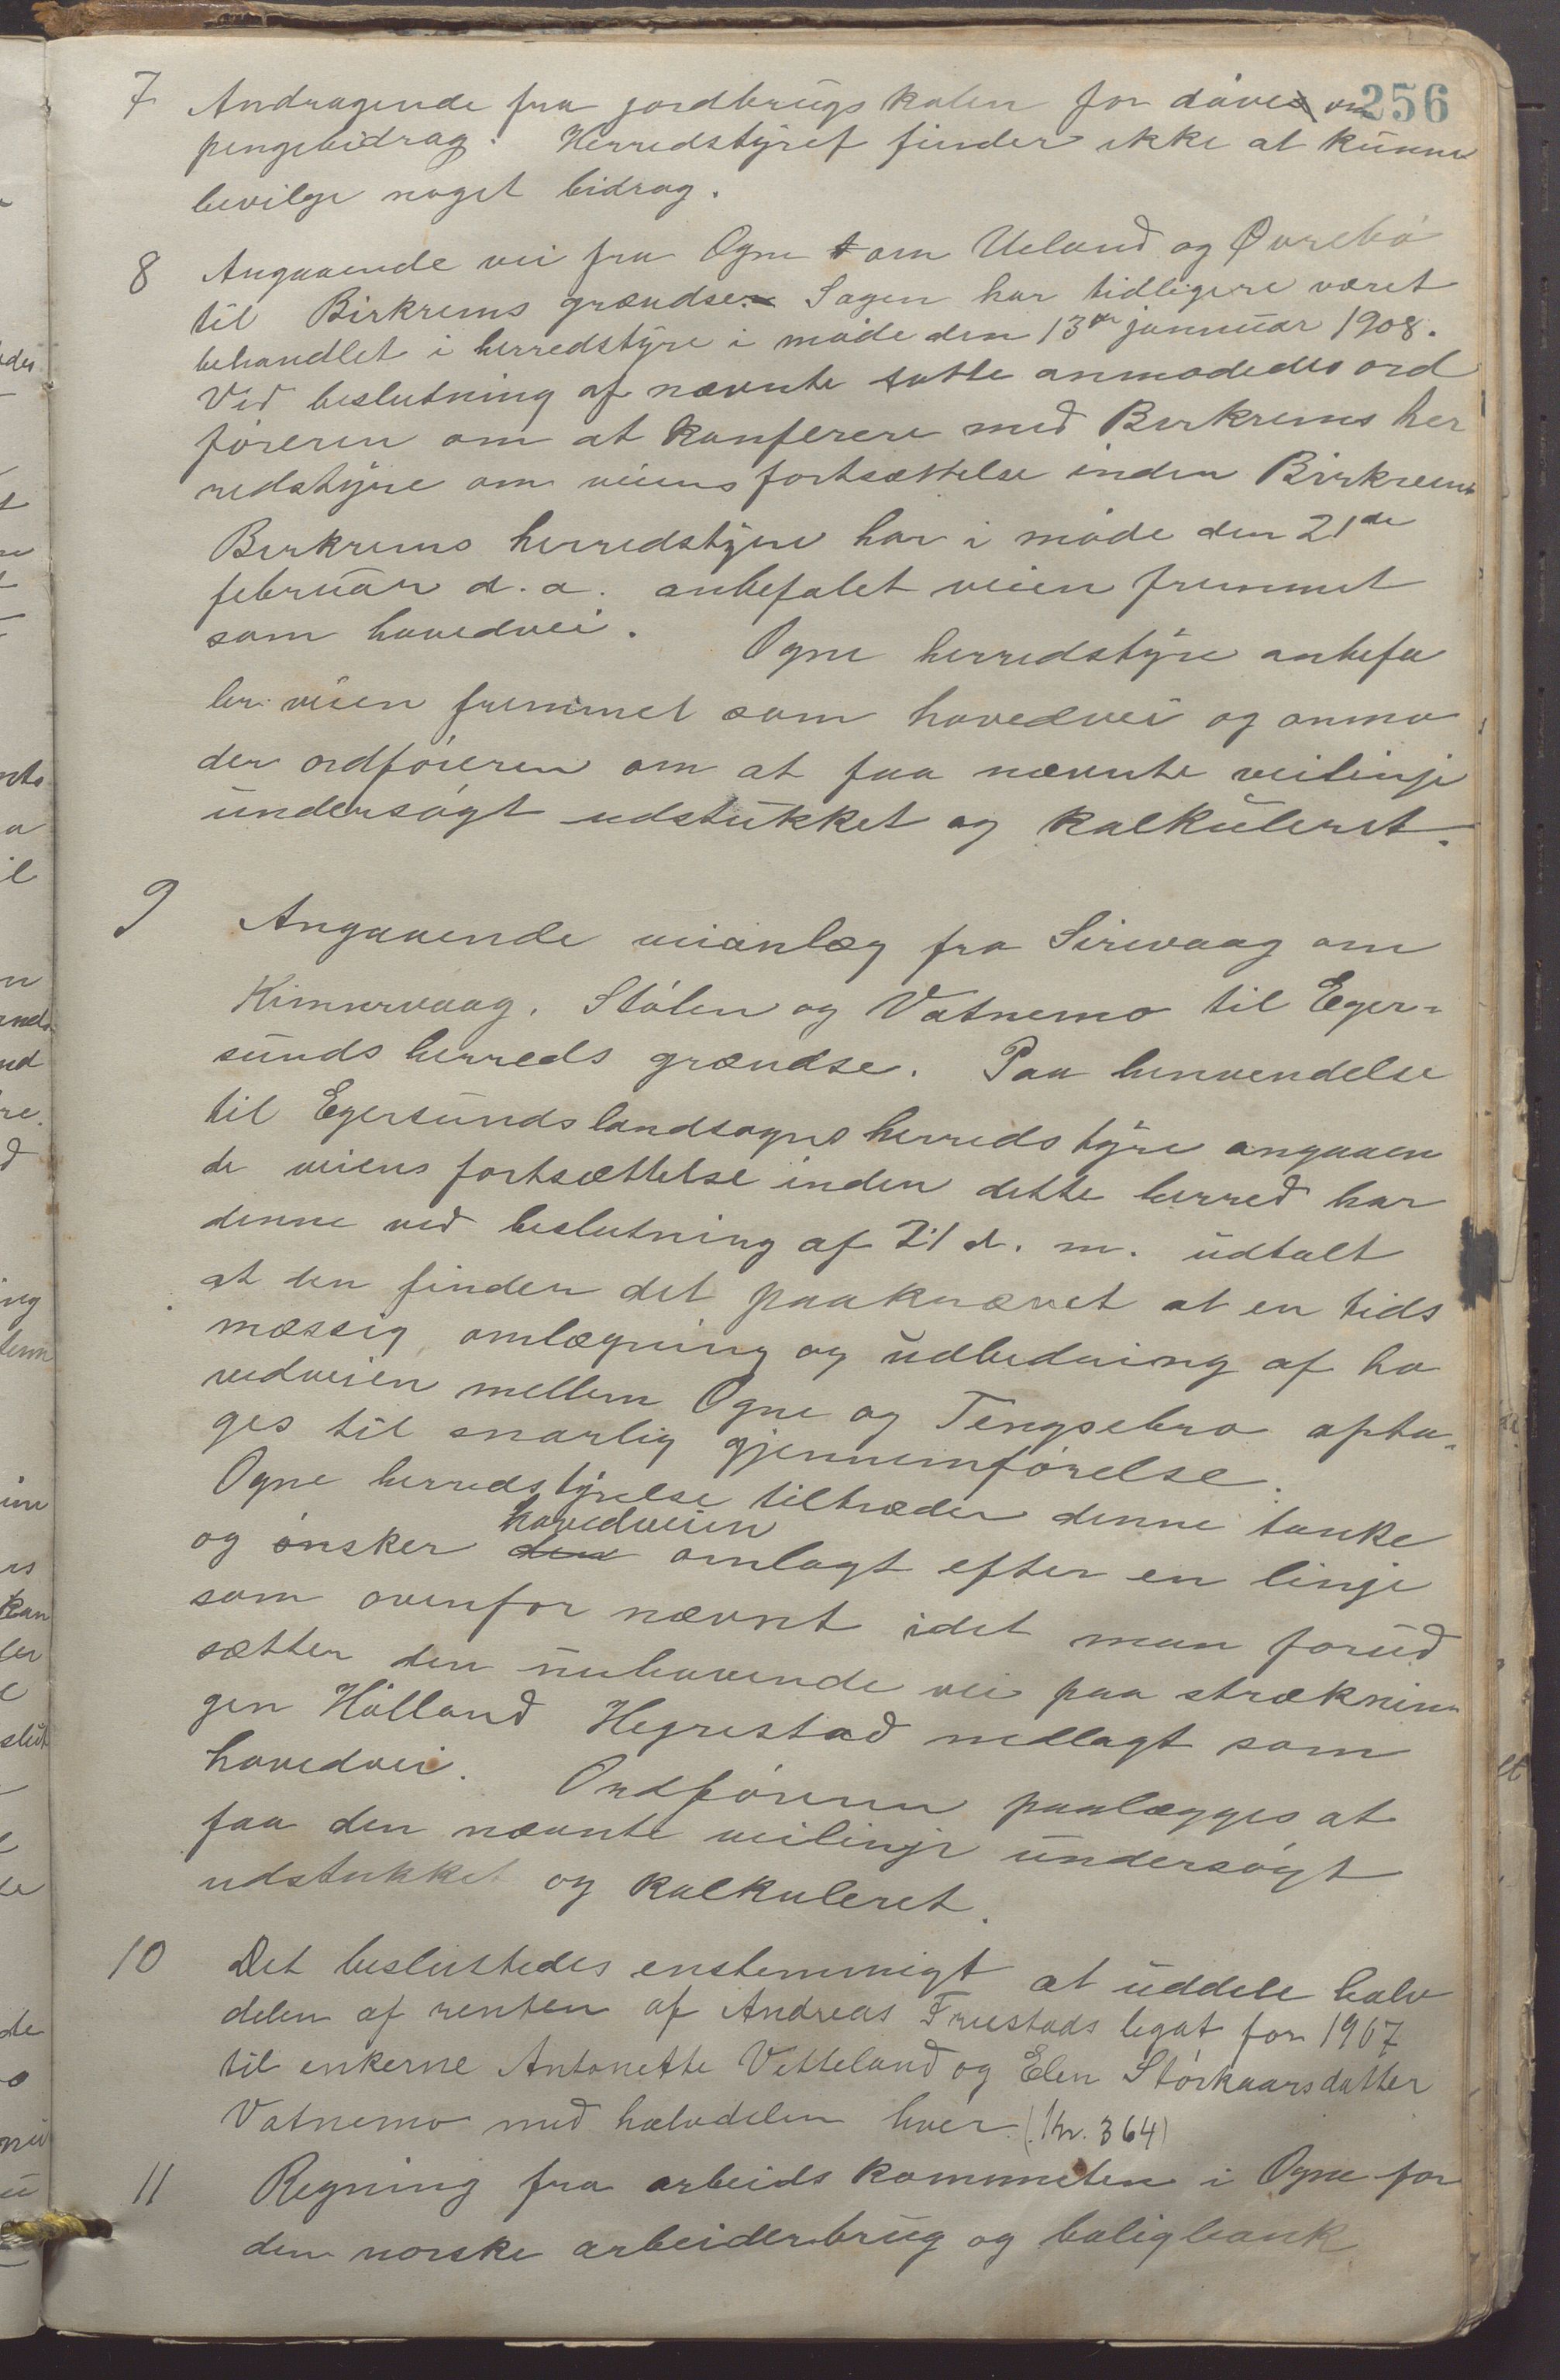 256
7 Andragende fra jordbrugskolen for døve om
pengebidrag. Herredstyret finder ikke at kunne
bevilge noget bidrag.
8 Angaaende vei fra Ogne om Ueland og Øvrebø
til Birkrems grændse. Sagen har tidligere været
behandlet i herredstyre i møde den 13de januar 1908.
Ved beslutning af nævnte datto anmodedes ord
føreren om at konferere med Birkrems her
redstyre om veiens fortsættelse inden Birkrem
Birkrems herredstyre har i møde den 21de
februar d. a. anbefalet veien fremmet
som hovedvei. Ogne herredstyre anbefa
ler veien fremmet som hovedvei og anmo
der ordføreren om at faa nævnte veilinje
undersøgt udstukket og kalkuleret.
9 Angaaende veianlæg fra Sirevaag om
Kimervaag, Stølen og Vatnemo til Eger=
sunds herreds grændse. Paa henvendelse
til Egersunds landsogns herredstyre angaaen
de veiens fortsættelse inden dette herred har
denne ved beslutning af 21 d. m. udtalt
at den finder det paakrævet at en tids
mæssig omlægning og udbedring af ho
vedveien mellem Ogne og Tengsebro opta=
ges til snarlig gjennemførelse.
Ogne herredstyrelse tiltræder denne tanke
og ønsker den hovedveien omlagt efter en linje
som ovenfor nævnt idet man forud
sætter den nuhavende vei paa stræknin=
gen Hølland Hegrestad nedlagt som
hovedvei. Ordføreren paalægges at
faa den nævnte veilinje undersøgt
udstukket og kalkuleret.
10 Det besluttedes enstemmigt at uddele halv
delen af renten af Andreas Fruestads legat for 1907
til enkerne Antonette Vetteland og Elen Størkaarsdatter
Vatnemo med halvdelen hver (Kr. 364)
11 Regning fra arbeidskommiteen i Ogne for
den norske arbeiderbrug og boligbank